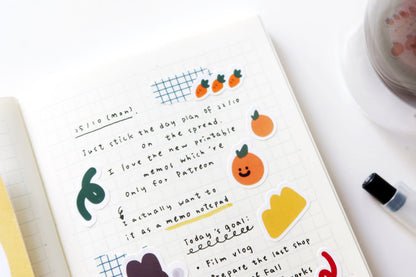 25/10 (mon).
Just stick the day plan of 25/10
on the spread.
I love the new printable
memos which're
only for Patreon
I actually want to
it as a memo notepad
Today's goal:
• Film vlog
Prepare the last shop
of Fall